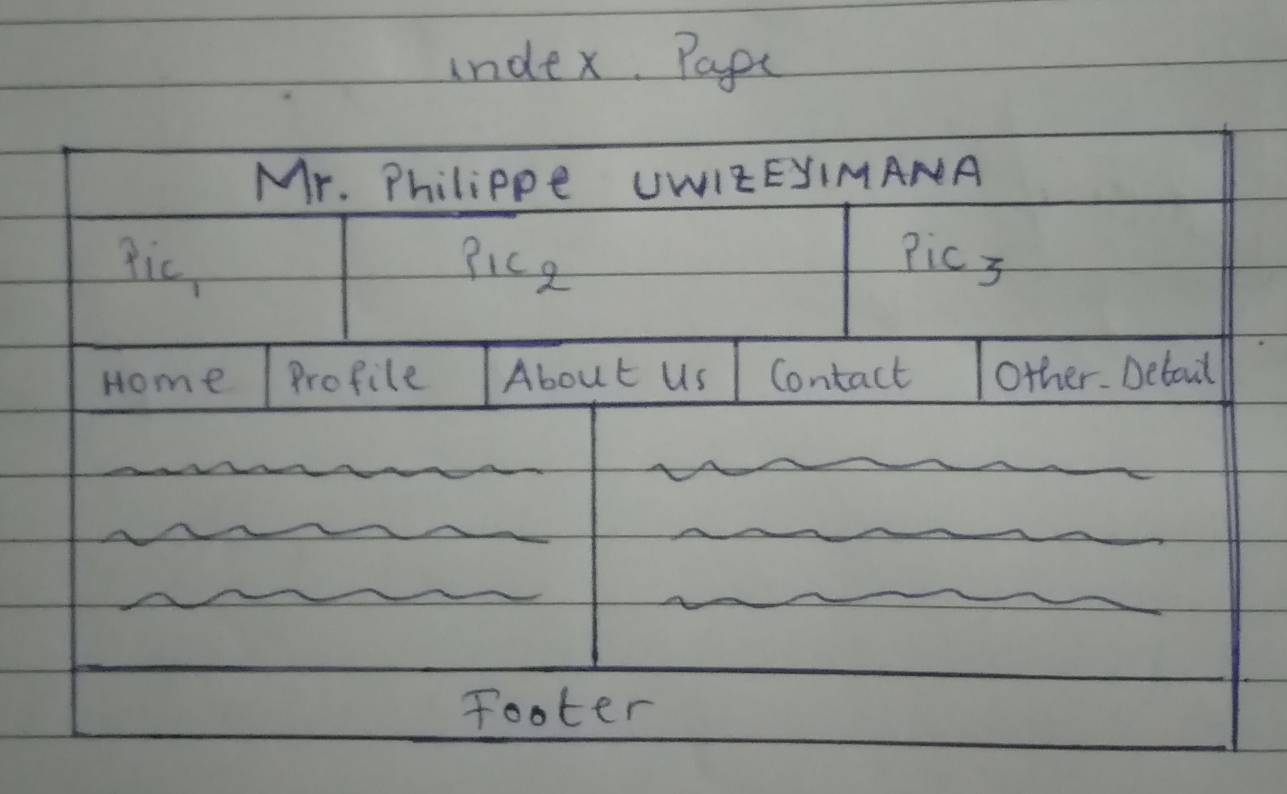 index. Page
Mr. Philippe UWIZEYIMANA
Pic1 Pic2 Pic3
Home Profile About Us Contact Other-Detail
Footer